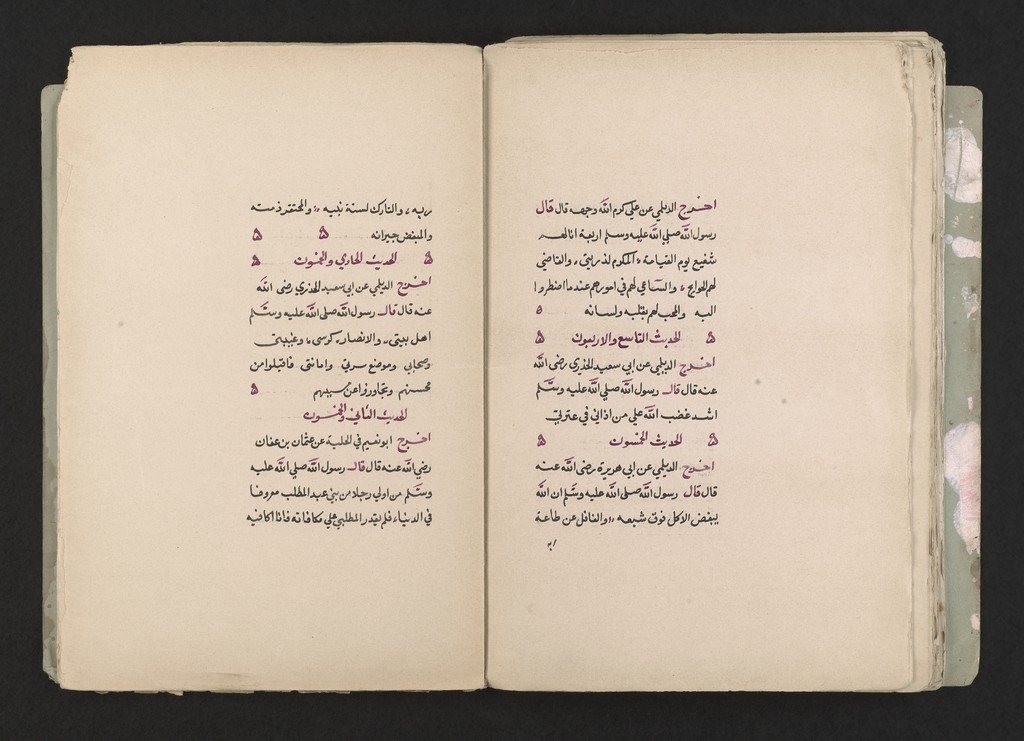 اخرج الديلمي عن علي كرم الله وجهه قال قال
رسول الله صلى الله عليه وسلم اربعة انا لهم
شفيع يوم القيامة المكرم لذريتي والقاضي
لهم الحوايج والساعي لهم في امورهم عندما اضطروا
اليه والمحب لهم بقلبه ولسانه ۵
۵ الحديث التاسع والاربعون ۵
اخرج الديلمي عن ابي سعيد الخذري رضى الله
عنه قال قال رسول الله صلى الله عليه وسلم
اشد غضب الله على من اذاني في عترتي
۵ الحديث الخمسون ۵
اخرج الديلمي عن ابي هريرة رضى الله عنه
قال قال رسول الله صلى الله عليه وسلم ان الله
يبغض الاكل فوق شبعه والغافل عن طاعة
ربه
ربه والتارك لسنة نبيه والمحتقر ذمته
والمبغض جيرانه ۵ ۵
۵ الحديث الحادي والخمسون ۵
اخرج الديلمي عن ابي سعيد الخذري رضى الله
عنه قال قال رسول الله صلى الله عليه وسلم
اهل بيتي والانصار كرسي وعيبتي
وصحابي وموضع سري وامانتي فاقبلوا من
محسنهم وتجاوزوا عن مسيهم ۵
الحديث الثاني والخمسون
اخرج ابو نعيم في الحلية عن عثمان بن عفان
رضي الله عنه قال قال رسول الله صلى الله عليه
وسلم من اولي رجلا من بني عبد المطلب معروفا
في الدنيا فلم يقدر المطلبي على مكافاته فانا اكافيه